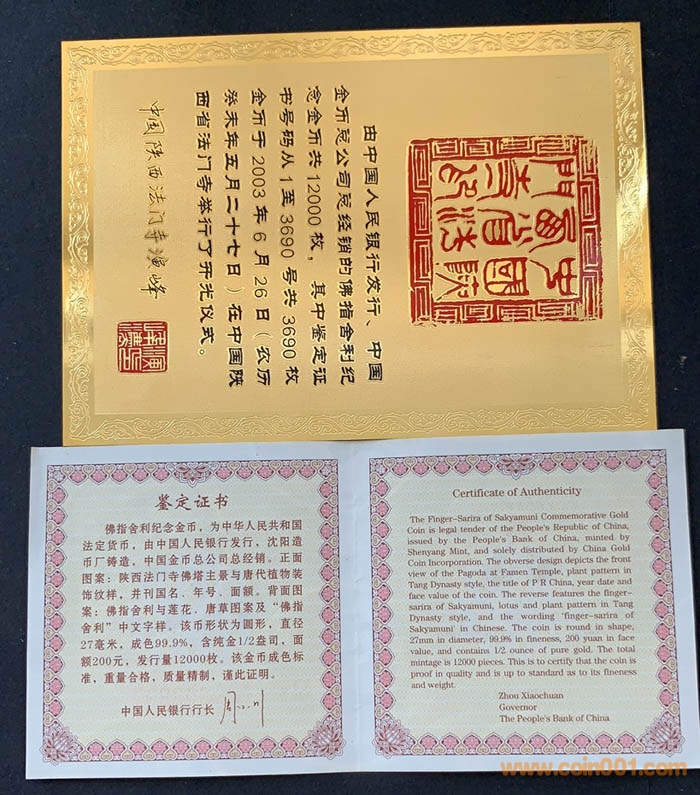 由中国人民银行发行、中国
金币总公司总经销的佛指舍利纪
念金币共12000枚，其中鉴定证
书号码从1至3690号共3690枚
金币于2003年6月26日（农历
癸未年五月二十七日）在中国陕
西省法门寺举行了开光仪式。
中国陕西法门寺演峰
鉴定证书
佛指舍利纪念金币，为中华人民共和国
法定货币，由中国人民银行发行，沈阳造
币厂铸造，中国金币总公司总经销。正面
图案：陕西法门寺佛塔主景与唐代植物装
饰纹样，并刊国名、年号、面额。背面图
案：佛指舍利与莲花、唐草图案及“佛指
舍利”中文字样。该币形状为圆形，直径
27毫米，成色99.9%，含纯金1/2盎司，面
额200元，发行量12000枚。该金币成色标
准，重量合格，质量精制，谨此证明。
中国人民银行行长 周小川
Certificate of Authenticity
The Finger–Sarira of Sakyamuni Commemorative Gold
Coin is legal tender of the People's Republic of China,
issued by the People's Bank of China, minted by
Shenyang Mint, and solely distributed by China Gold
Coin Incorporation. The obverse design depicts the front
view of the Pagoda at Famen Temple, plant pattern in
Tang Dynasty style, the title of P R China, year date and
face value of the coin. The reverse features the finger–
sarira of Sakyamuni, lotus and plant pattern in Tang
Dynasty style, and the wording 'finger–sarira of
Sakyamuni' in Chinese. The coin is round in shape,
27mm in diameter, 99.9% in fineness, 200 yuan in face
value, and contains 1/2 ounce of pure gold. The total
mintage is 12000 pieces. This is to certify that the coin is
proof in quality and is up to standard as to its fineness
and weight.
Zhou Xiaochuan
Governor
The People's Bank of China
www.coin001.com